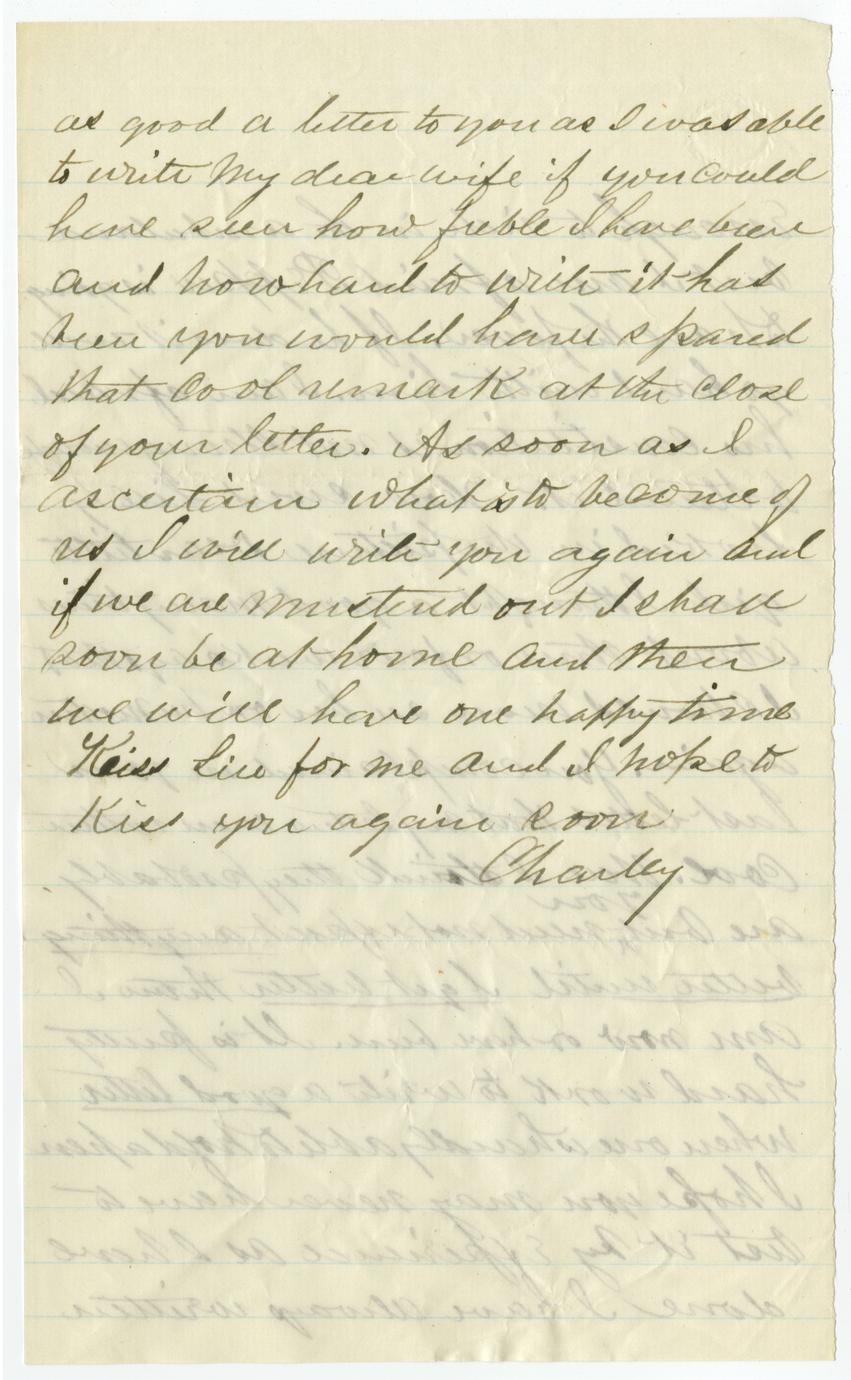 as good a letter to you as I was able
to write My dear wife if you could
have seen how feeble I have been
and how hard to write it has
been you would have spared
that cool remark at the close
of your letter. As soon as I
ascertain what is to become of
us I will write you again and
if we are mustered out I shall
soon be at home and then
we will have one happy time
Kiss Liu for me and I hope to
Kiss you again soon
Charley